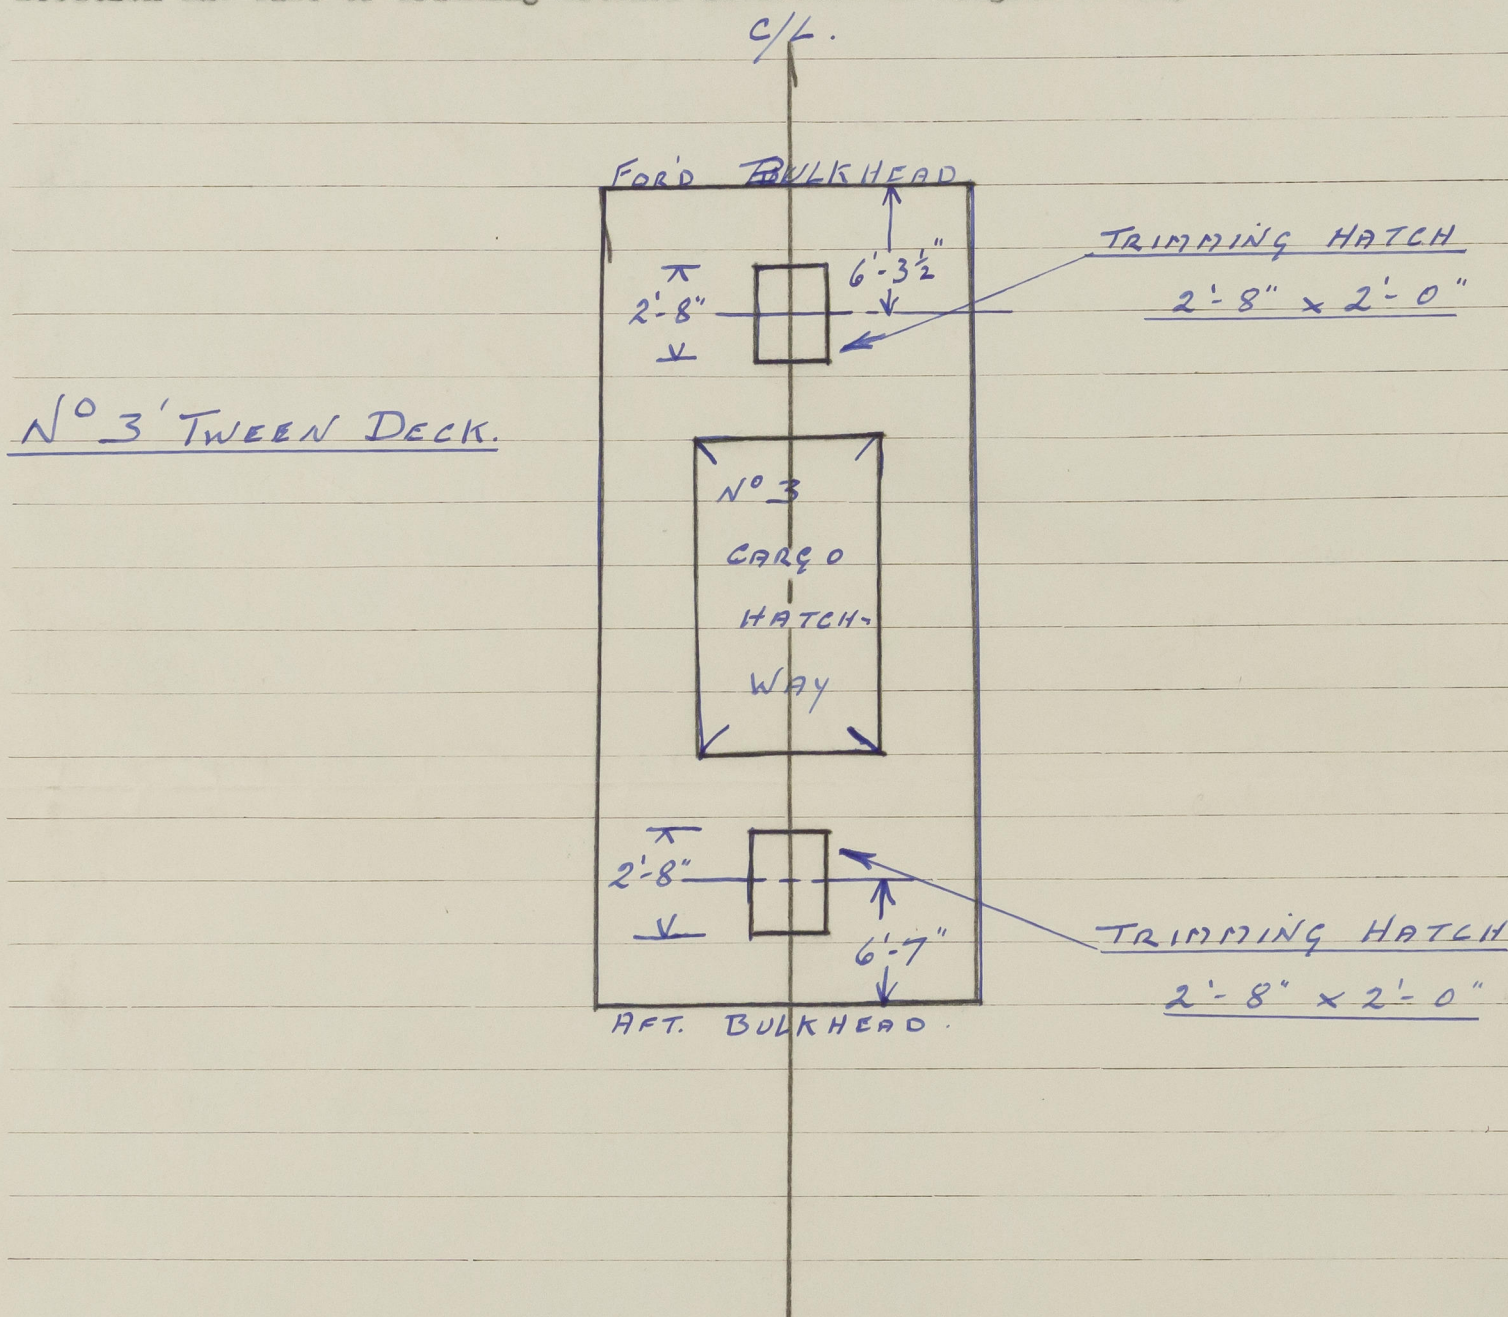 C/L.
FOR'D BULKHEAD
6'-3½"
TRIMMING HATCH
2'-8" x 2'-0"
2'-8"
Nº 3 'TWEEN DECK.
Nº 3
CARGO
HATCH-
WAY
2'-8"
6'-7"
TRIMMING HATCH
2'-8" x 2'-0"
AFT. BULKHEAD.